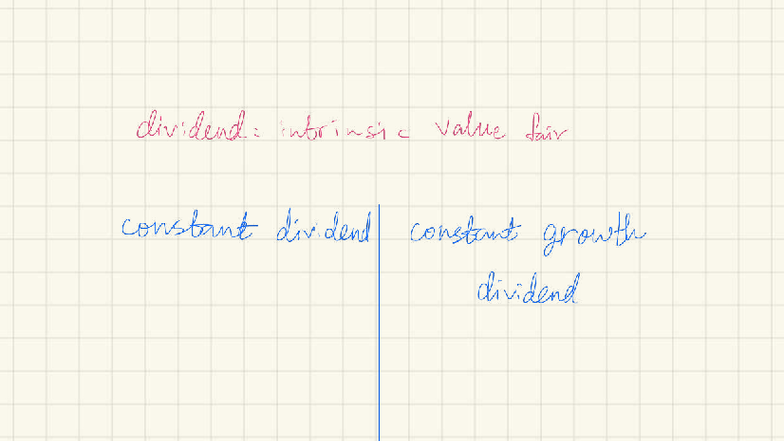 dividend: intrinsic value fair
constant dividend
constant growth
dividend